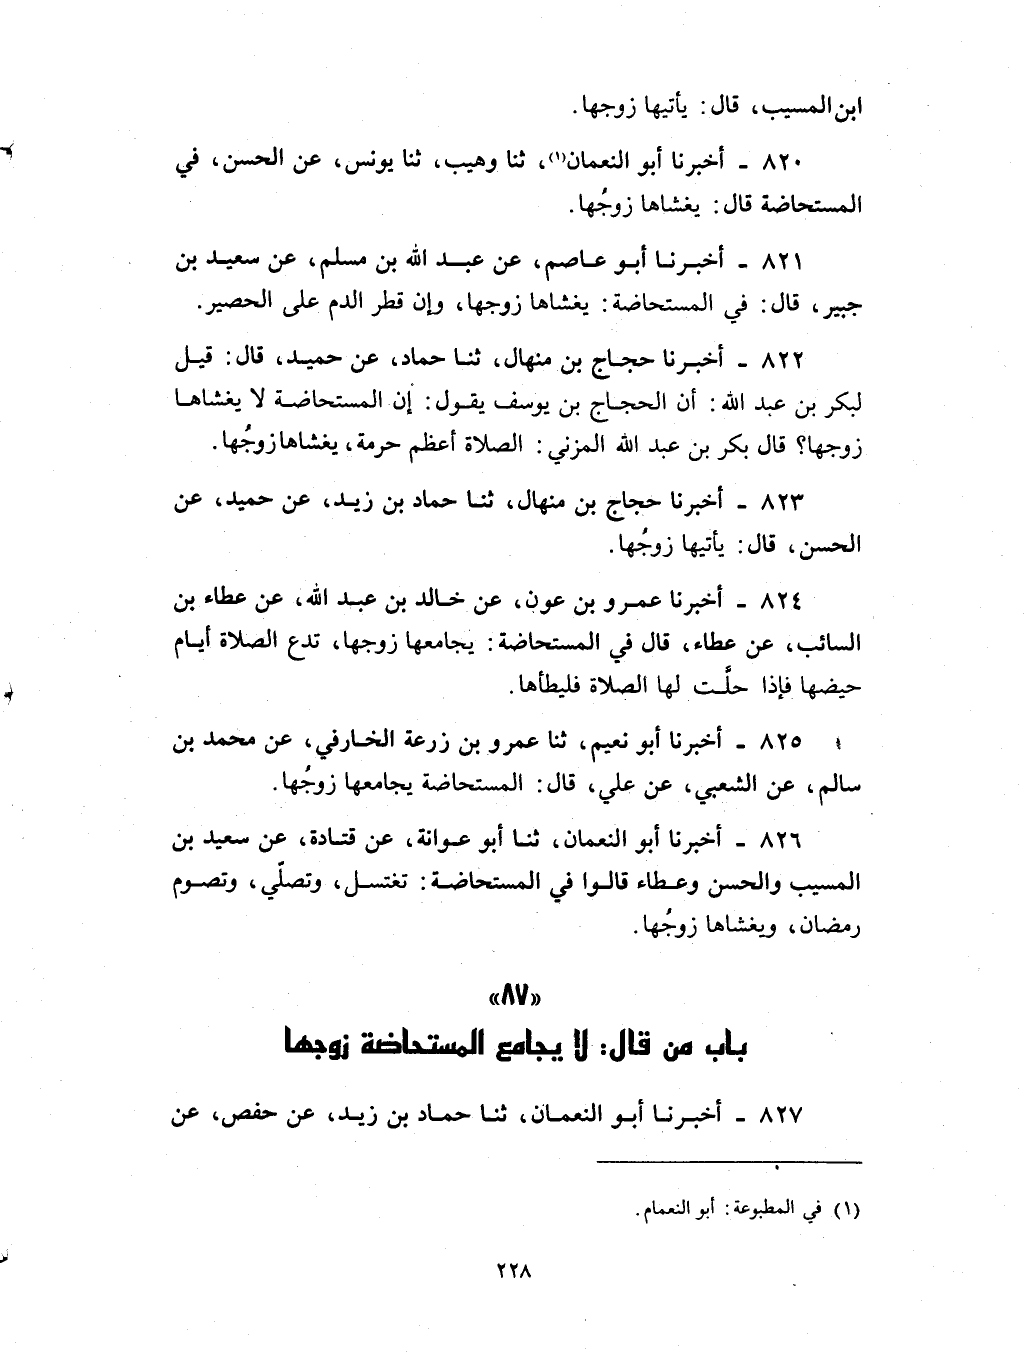 ابن المسيب، قال: يأتيها زوجها.
٨٢٠ ـ أخبرنا أبو النعمان(١)، ثنا وهيب، ثنا يونس، عن الحسن، في
المستحاضة قال: يغشاها زوجُها.
٨٢١ ـ أخبرنا أبو عاصم، عن عبد الله بن مسلم، عن سعيد بن
جبير، قال: في المستحاضة: يغشاها زوجها، وإن قطر الدم على الحصير.
٨٢٢ ـ أخبرنا حجاج بن منهال، ثنا حماد، عن حميد، قال: قيل
لبكر بن عبد الله: أن الحجاج بن يوسف يقول: إن المستحاضة لا يغشاها
زوجها؟ قال بكر بن عبد الله المزني: الصلاة أعظم حرمة، يغشاها زوجُها.
٨٢٣ ـ أخبرنا حجاج بن منهال، ثنا حماد بن زيد، عن حميد، عن
الحسن، قال: يأتيها زوجُها.
٨٢٤ ـ أخبرنا عمرو بن عون، عن خالد بن عبد الله، عن عطاء بن
السائب، عن عطاء، قال في المستحاضة: يجامعها زوجها، تدع الصلاة أيام
حيضها فإذا حلَّت لها الصلاة فليطأها.
٨٢٥ ـ أخبرنا أبو نعيم، ثنا عمرو بن زرعة الخارفي، عن محمد بن
سالم، عن الشعبي، عن علي، قال: المستحاضة يجامعها زوجُها.
٨٢٦ ـ أخبرنا أبو النعمان، ثنا أبو عوانة، عن قتادة، عن سعيد بن
المسيب والحسن وعطاء قالوا في المستحاضة: تغتسل، وتصلّي، وتصوم
رمضان، ويغشاها زوجُها.
«٨٧»
باب من قال: لا يجامع المستحاضة زوجها
٨٢٧ ـ أخبرنا أبو النعمان، ثنا حماد بن زيد، عن حفص، عن
(١) في المطبوعة: أبو النعمام.
٢٢٨